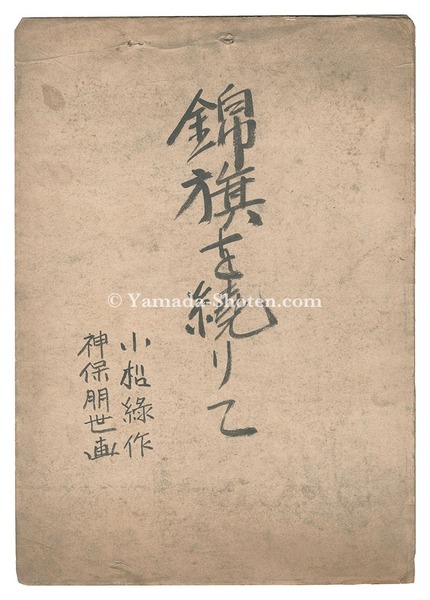 錦旗を繞りて
小松緑作
神保朋世画
© Yamada-Shoten.com